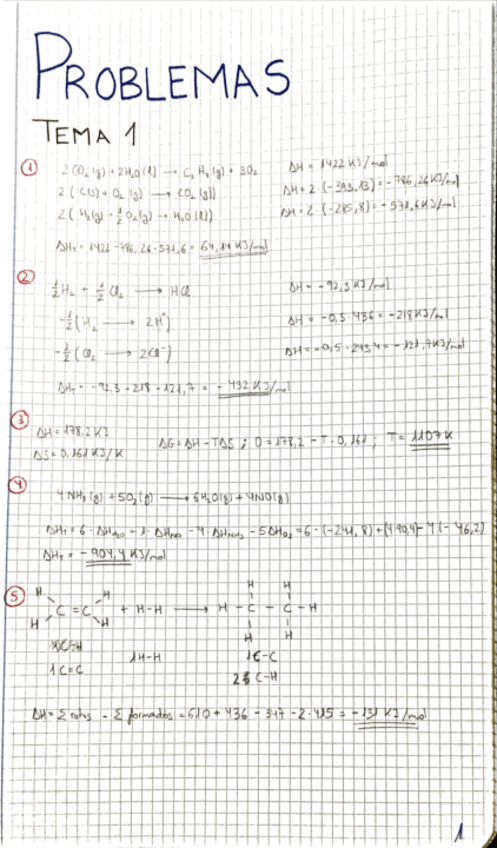 PROBLEMAS
TEMA 1
① 2CO₂(g) + 2H₂O(l) → C₂H₄(g) + 3O₂ ΔH = 1422 KJ/mol
2(C(s) + O₂(g) → CO₂(g)) ΔH = 2·(-393,13) = -786,26 KJ/mol
2(H₂(g) + ½O₂(g) → H₂O(l)) ΔH = 2·(-285,8) = -571,6 KJ/mol
ΔHᴛ = 1422 - 786,26 - 571,6 = 64,14 KJ/mol
② ½H₂ + ½Cl₂ → HCl ΔH = -92,3 KJ/mol
-½(H₂ → 2H⁺) ΔH = -0,5·436 = -218 KJ/mol
-½(Cl₂ → 2Cl⁻) ΔH = -0,5·243,4 = -121,7 KJ/mol
ΔHᴛ = -92,3 - 218 - 121,7 = -432 KJ/mol
③
ΔH = 178,2 KJ
ΔS = 0,161 KJ/K ΔG = ΔH - TΔS ; 0 = 178,2 - T·0,161 ; T = 1107 K
④
4NH₃(g) + 5O₂(g) → 6H₂O(g) + 4NO(g)
ΔHᴛ = 6·ΔH H₂O - 1·ΔH NO - 4·ΔH NH₃ - 5ΔH O₂ = 6·(-241,8) + (4·90,4) - 4(-46,2)
ΔHᴛ = -904,4 KJ/mol
⑤ H H H H
C = C + H-H → H - C - C - H
H H H H
1H-H 1C-C
1C=C 2 C-H
ΔH = Σ rotos - Σ formados = 610 + 436 - 347 - 2·415 = -131 KJ/mol
1